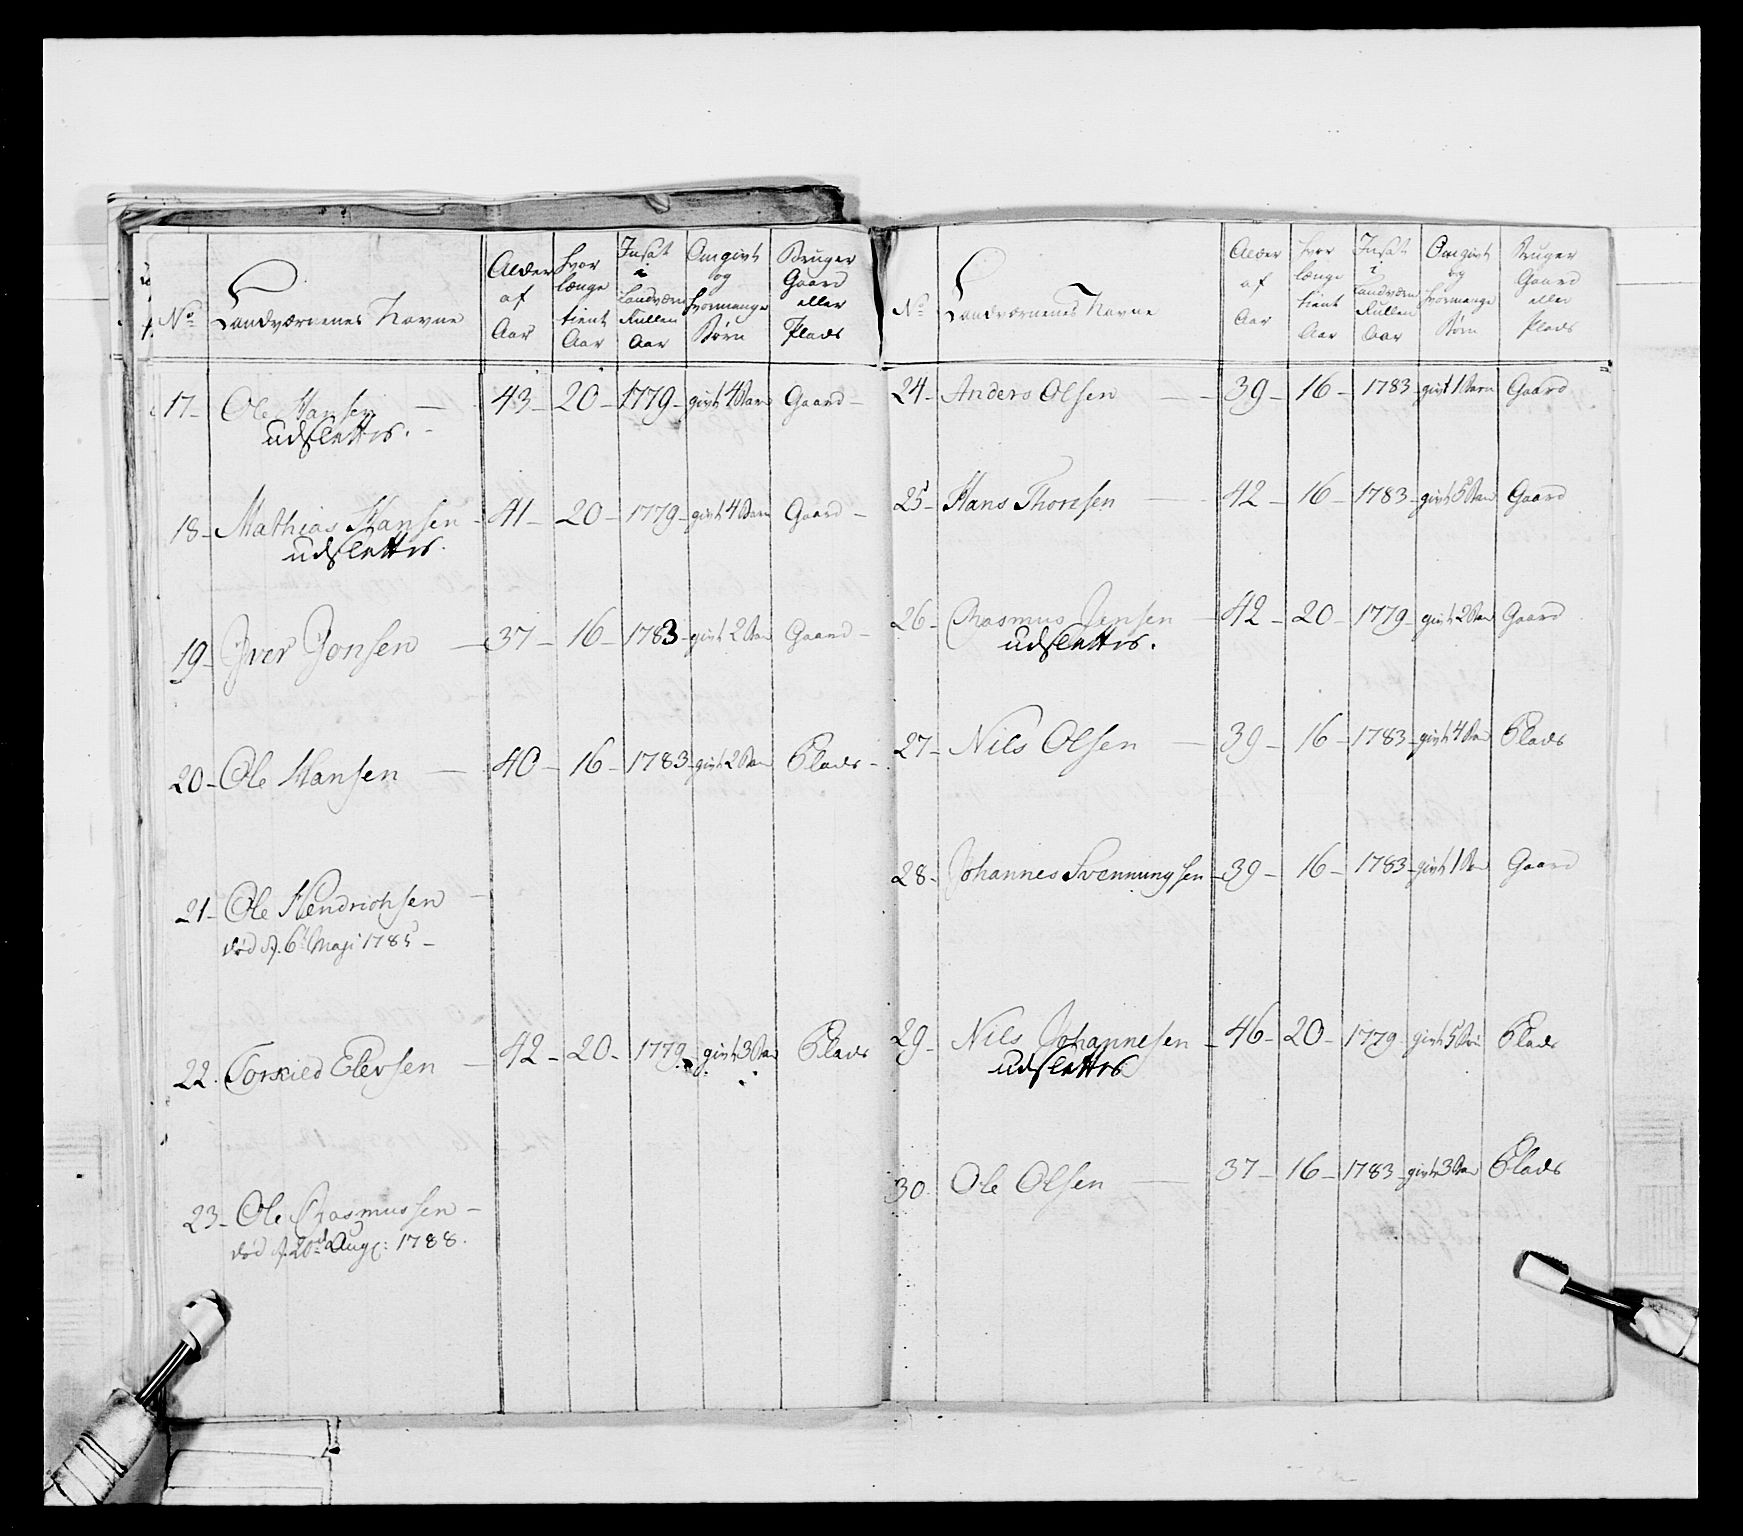 No. Landværnenes Navne Alder af Aar hvor længe tient Aar Insat i Landværn Rullen Aar Om givt og hvormange Børn Bruger Gaard eller Plads
17 - Ole Hansen - 43 - 20 - 1779 - givt 4 Barn Gaard -
udslettes. -
18 - Mathias Hansen - 41 - 20 - 1779 - givt 4 Barn Gaard -
udslettes.
19 - Iver Jonsen - 37 - 16 - 1783 - givt 2 Barn Gaard -
20 - Ole Hansen - 40 - 16 - 1783 - givt 2 Barn Plads -
21 - Ole Hendrichsen -
død d. 6t Maji 1785 -
22. Torkield Elevsen - 42 - 20 - 1779 - givt 3 Barn Plads
23 - Ole Rasmussen -
død d. 20de Aug: 1788.
No. Landværnenes Navne Alder af Aar hvor længe tient Aar Insat i Landværn Rullen Aar Om givt og hvormange Børn Bruger Gaard eller Plads
24 - Anders Olsen - 39 - 16 - 1783 - givt 1 Barn Gaard
25 - Hans Thoresen - 42 - 16 - 1783 - givt 5 Barn Gaard
26 - Rasmus Jensen - 42 - 20 - 1779 - givt 2 Barn Gaard
udslettes.
27 - Nils Olsen - 39 - 16 - 1783 - givt 4 Barn Plads
28 - Johannes Svenningsen - 39 - 16 - 1783 - givt 1 Barn Gaard
29 - Nils Johannesen - 46 - 20 - 1779 - givt 5 Barn Plads
udslettes
30. Ole Olsen - 37 - 16 - 1783 - givt 3 Barn Plads